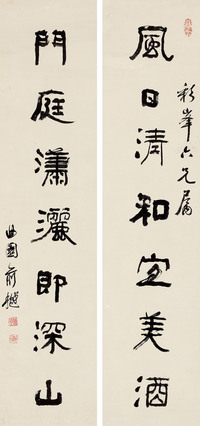 風日清和宜美酒
彩峯六兄屬
門庭瀟灑即深山
曲園俞樾